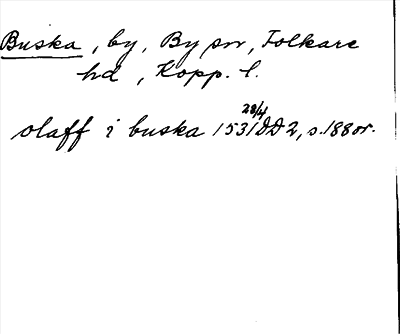 Buska, by, By sn, Folkare
hd, Kopp. l.
28/4
olaff i buska 1531 DD 2, s. 188 or.